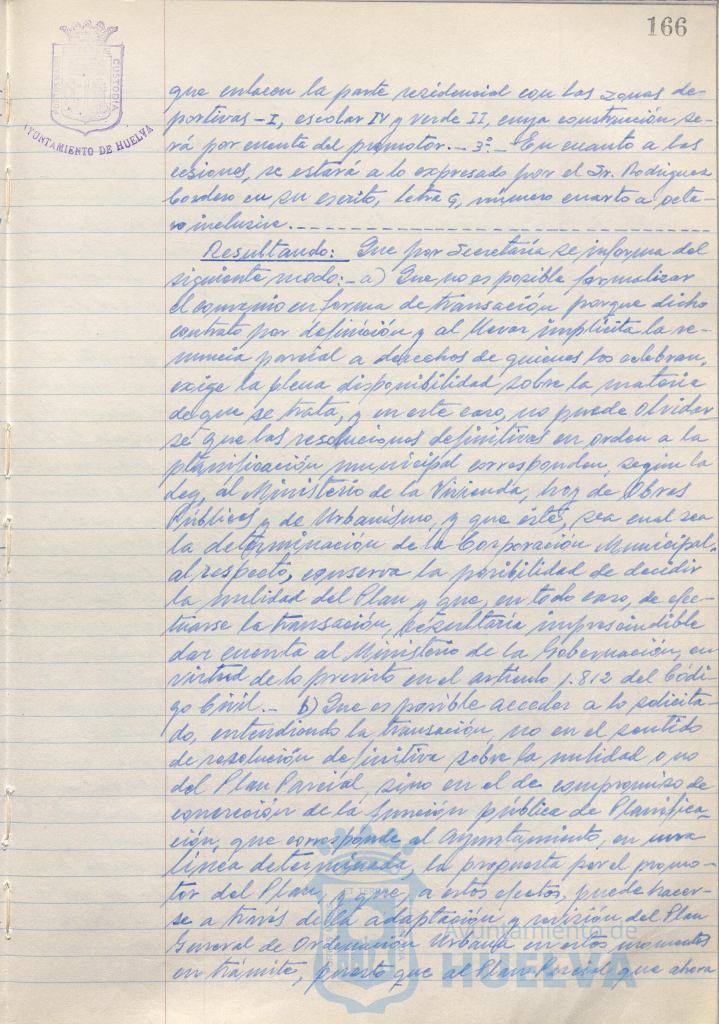 166
CUSTODIA
AYUNTAMIENTO DE HUELVA
que enlacen la parte residencial con las zonas de-
portivas-I, escolar IV y verde II, cuya construcción se-
rá por cuenta del promotor.- 3º.- En cuanto a las
cesiones, se estará a lo expresado por el Sr. Rodríguez
Cordero en su escrito, letra G, número cuarto a octa-
vo inclusive.
Resultando: Que por Secretaría se informa del
siguiente modo:- a) Que no es posible formalizar
el convenio en forma de transación porque dicho
contrato por definición y al llevar implícita la re-
nuncia parcial a derechos de quienes los celebran,
exige la plena disponibilidad sobre la materia
de que se trata, y en este caso, no puede olvidar
se que las resoluciones definitivas en orden a la
planificación municipal corresponden, según la
Ley, al Ministerio de la Vivienda, hoy de Obras
Públicas y de Urbanismo, y que éste, sea cual sea
la determinación de la Corporación Municipal
al respecto, conserva la posibilidad de decidir
la nulidad del Plan y que, en todo caso, de efec-
tuarse la transación, resultaría imprescindible
dar cuenta al Ministerio de la Gobernación, en
virtud de lo previsto en el artículo 1.812 del Códi-
go Civil.- b) Que es posible acceder a lo solicita-
do, entendiendo la transación, no en el sentido
de resolución definitiva sobre la nulidad o no
del Plan Parcial, sino en el de compromiso de
concreción de la función pública de Planifica-
ción, que corresponde al Ayuntamiento, en una
línea determinada, la propuesta por el promo-
tor del Plan, y que, a estos efectos, puede hacer-
se a través de la adaptación y revisión del Plan
General de Ordenación Urbana en estos momentos
en trámite, puesto que al Plan Parcial que ahora
Ayuntamiento de
HUELVA